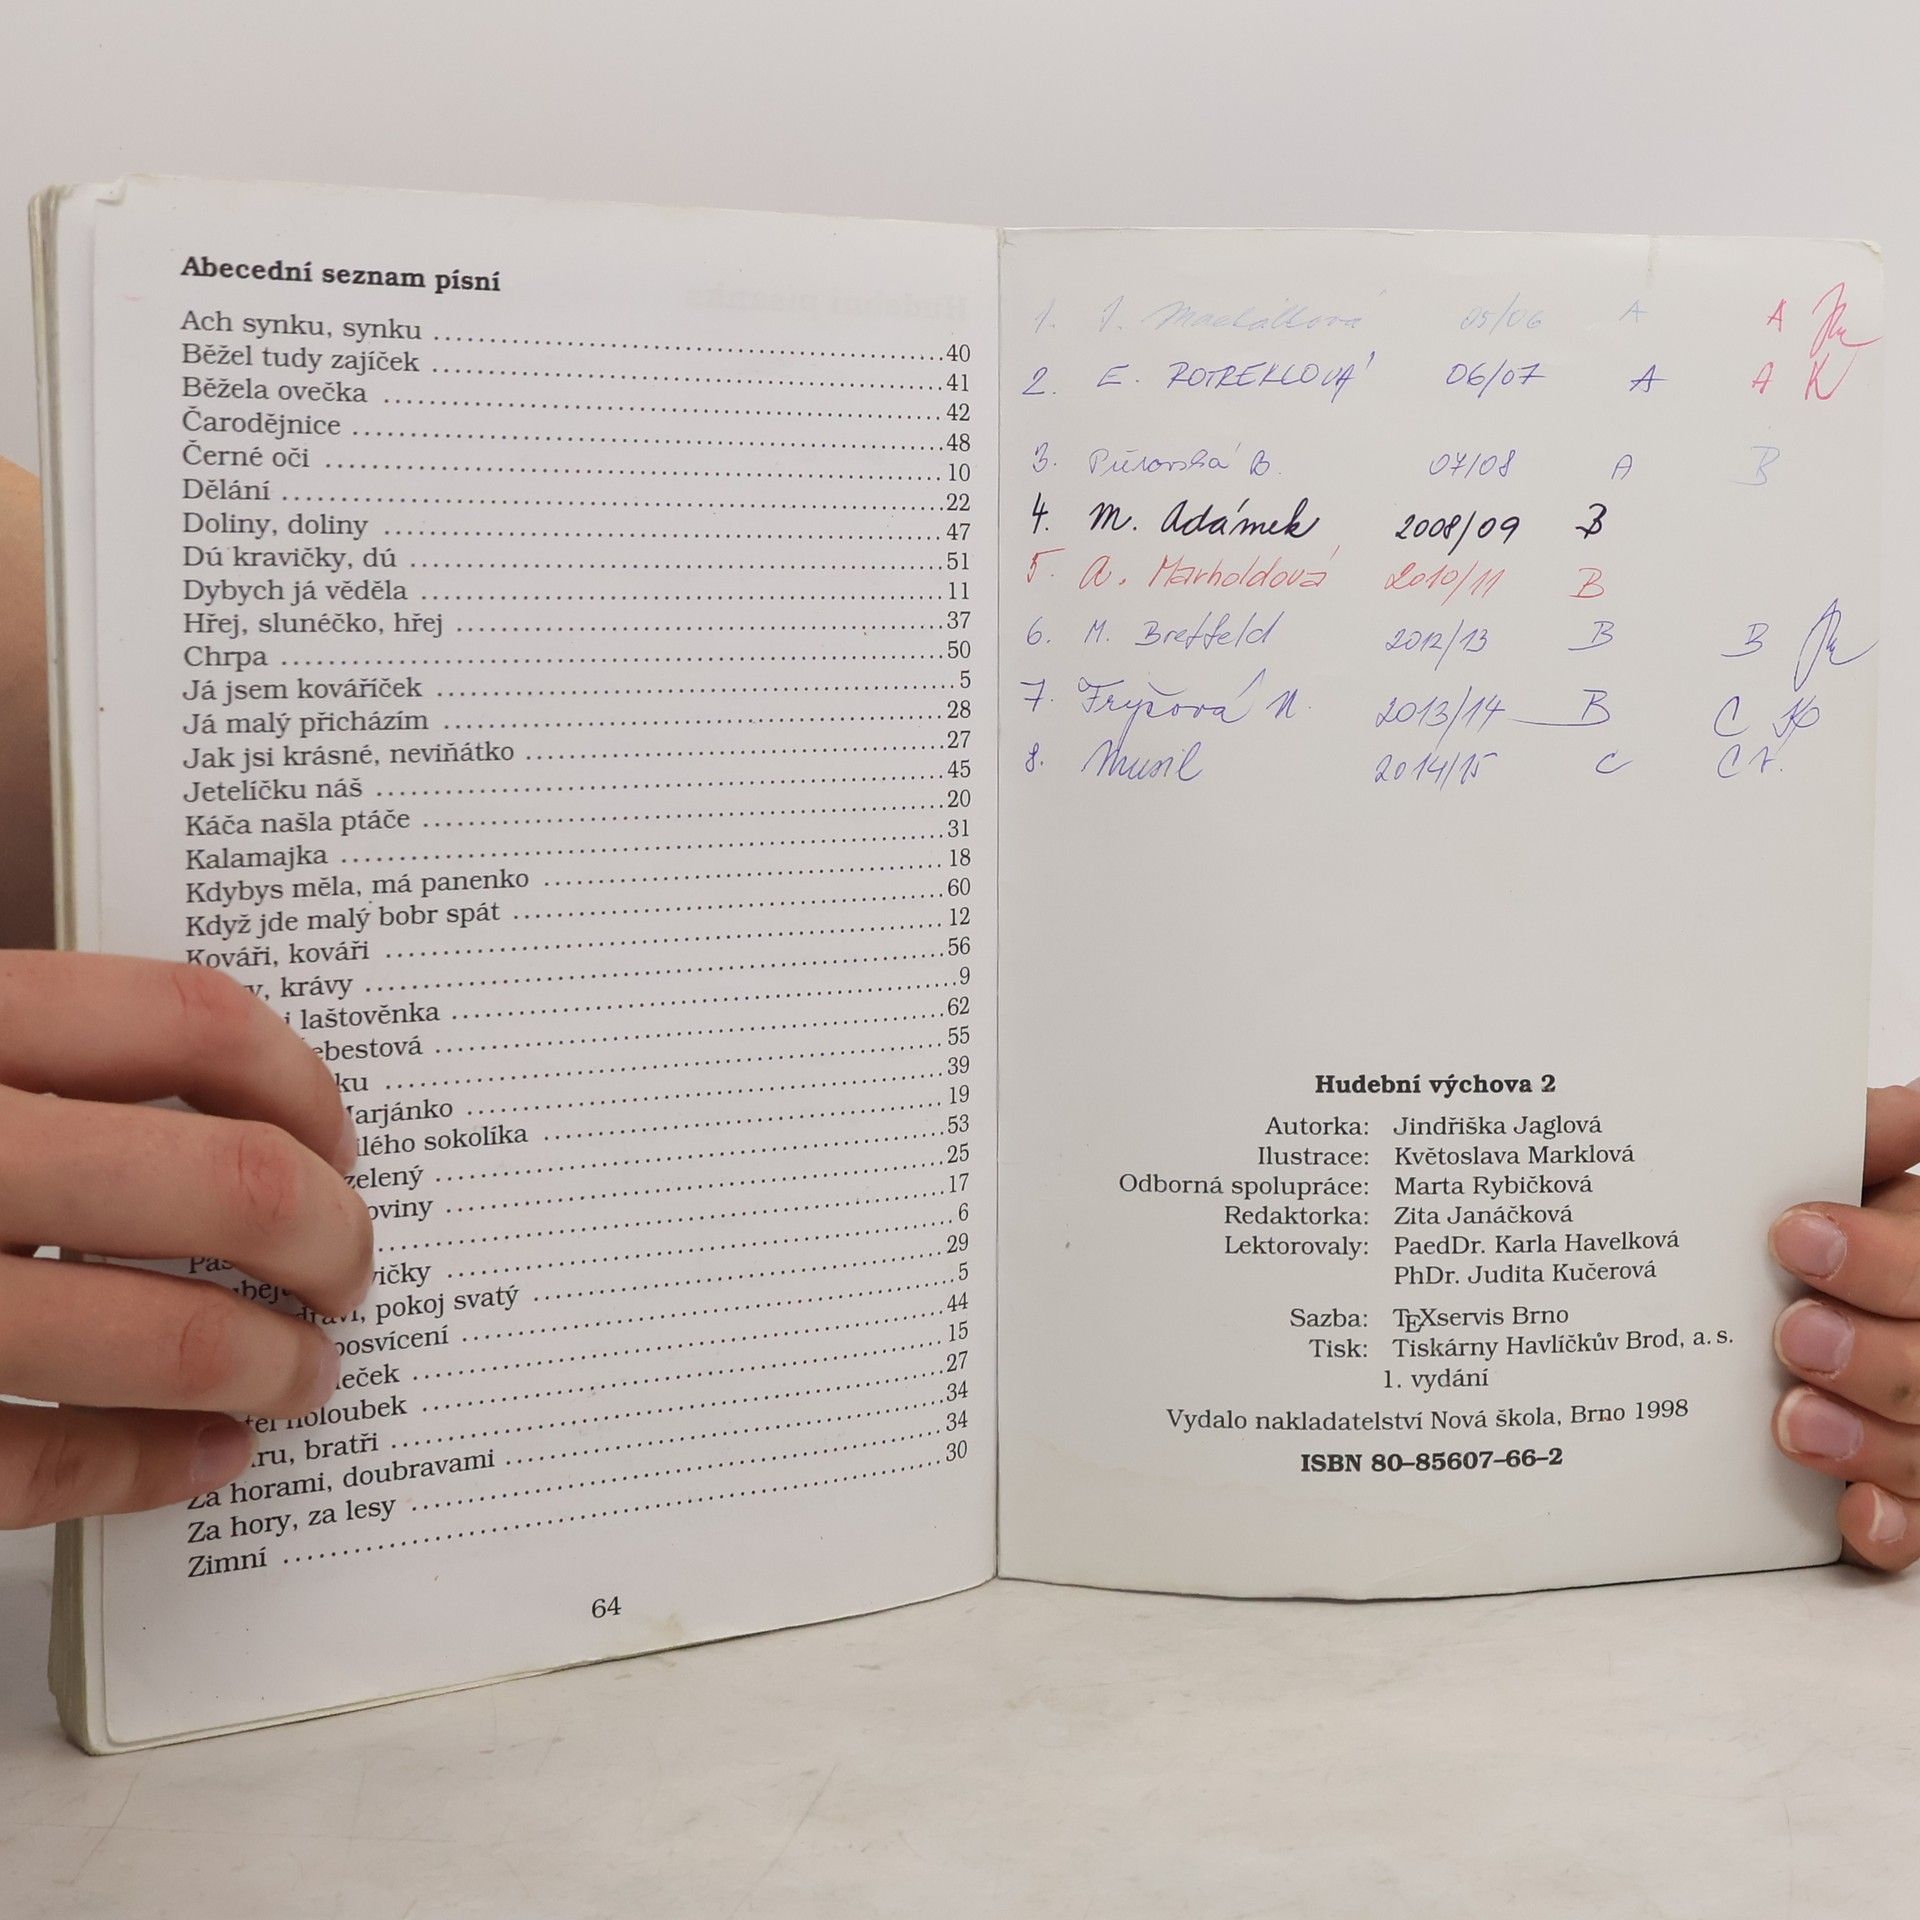 Abecední seznam písní
Ach synku, synku ........ 40
Běžel tudy zajíček ........ 41
Běžela ovečka ........ 42
Čarodějnice ........ 48
Černé oči ........ 10
Dělání ........ 22
Doliny, doliny ........ 47
Dú kravičky, dú ........ 51
Dybych já věděla ........ 11
Hřej, slunéčko, hřej ........ 37
Chrpa ........ 50
Já jsem kováříček ........ 5
Já malý přicházím ........ 28
Jak jsi krásné, neviňátko ........ 27
Jetelíčku náš ........ 45
Káča našla ptáče ........ 20
Kalamajka ........ 31
Kdybys měla, má panenko ........ 18
Když jde malý bobr spát ........ 60
Kováři, kováři ........ 12
krávy ........ 56
laštověnka ........ 9
........ 62
........ 55
........ 39
sokolíka ........ 19
zelený ........ 53
........ 25
........ 17
........ 6
pokoj svatý ........ 29
posvícení ........ 5
........ 44
holoubek ........ 15
bratři ........ 27
Za horami, doubravami ........ 34
Za hory, za lesy ........ 34
Zimní ........ 30
64
1. 05/06 A A
2. E. ROTREKLOVÁ 06/07 A A K
3. B. 07/08 A B
4. M. Adámek 2008/09 B
5. A. Marholdová 2010/11 B
6. M. Bretfeld 2012/13 B B
7. Fryšová N. 2013/14 B C
8. Musil 2014/15 C C
Hudební výchova 2
Autorka: Jindřiška Jaglová
Ilustrace: Květoslava Marklová
Odborná spolupráce: Marta Rybičková
Redaktorka: Zita Janáčková
Lektorovaly: PaedDr. Karla Havelková
PhDr. Judita Kučerová
Sazba: TEXservis Brno
Tisk: Tiskárny Havlíčkův Brod, a. s.
1. vydání
Vydalo nakladatelství Nová škola, Brno 1998
ISBN 80–85607–66–2